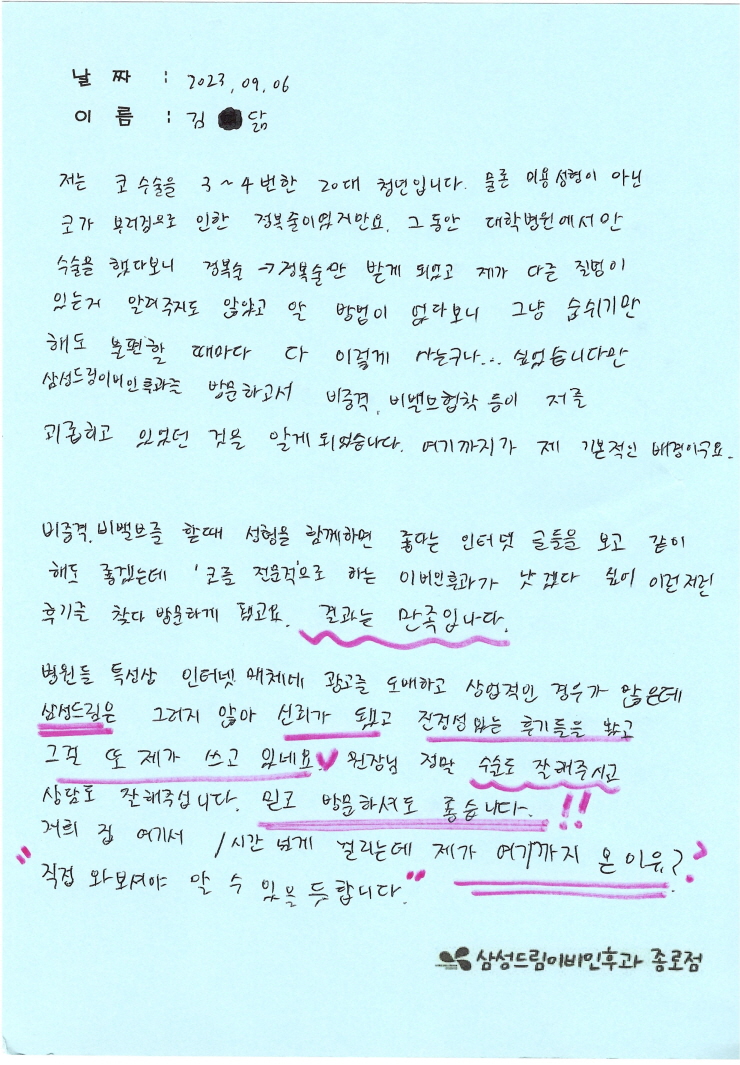 날 짜 : 2023. 09. 06
이 름 : 김 닮
저는 코 수술을 3~4번한 20대 청년입니다. 물론 미용성형이 아닌
코가 부러짐으로 인한 정복술이었지만요. 그동안 대학병원에서만
수술을 했다보니 정복술→정복술만 받게 되었고 제가 다른 질병이
있는거 알려주지도 않았고 알 방법이 없다보니 그냥 숨쉬기만
해도 불편할 때마다 다 이렇게 사는구나... 싶었습니다만
삼성드림이비인후과를 방문하고서 비중격, 비밸브협착 등이 저를
괴롭히고 있었던 것을 알게되었습니다. 여기까지가 제 기본적인 배경이구요.
비중격, 비밸브를 할때 성형을 함께하면 좋다는 인터넷 글들을 보고 같이
해도 좋겠는데 '코를 전문적'으로 하는 이비인후과가 낫겠다 싶어 이런저런
후기를 찾다 방문하게 됐고요. 결과는 만족입니다.
병원들 특성상 인터넷 매체에 광고를 도배하고 상업적인 경우가 많은데
삼성드림은 그러지 않아 신뢰가 됐고 진정성있는 후기들을 봤고
그걸 또 제가 쓰고 있네요♥ 원장님 정말 수술도 잘해주시고
상담도 잘해주십니다. 믿고 방문하셔도 좋습니다.!!
저희 집 여기서 1시간 넘게 걸리는데 제가 여기까지 온 이유?
"직접 와보셔야 알 수 있을 듯합니다."
삼성드림이비인후과 종로점